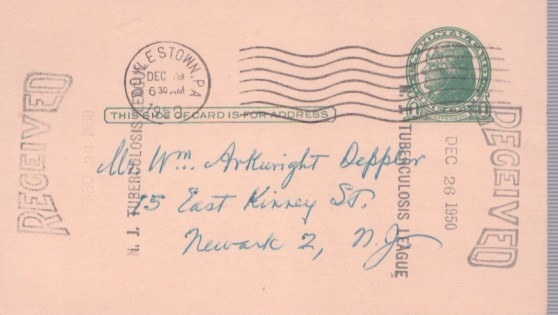 DOYLESTOWN, PA.
DEC 19
6 30 AM
1950
THIS SIDE OF CARD IS FOR ADDRESS
Mr. Wm. Arkwright Deppler
15 East Kinney St.
Newark 2, N.J.
RECEIVED
DEC 26 1950
N. J. TUBERCULOSIS LEAGUE
RECEIVED
DEC 26 1950
N. J. TUBERCULOSIS LEAGUE